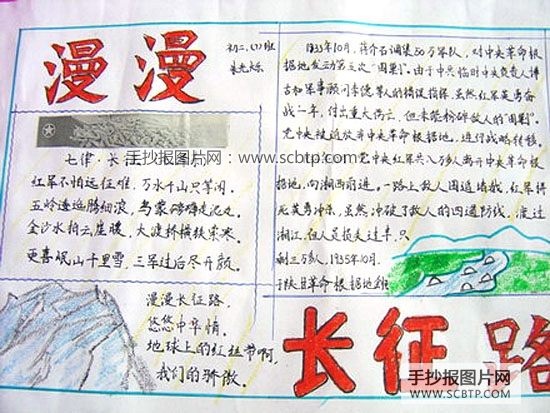 漫漫
初二、(1)班
七律·长
手抄报图片网:www.scbtp.com
红军不怕远征难,万水千山只等闲。
五岭逶迤腾细浪,乌蒙磅礴走泥丸。
金沙水拍云崖暖,大渡桥横铁索寒。
更喜岷山千里雪,三军过后尽开颜。
漫漫长征路,
悠悠中华情。
地球上的红丝带啊,
我们的骄傲。
1933年10月,蒋介石调集50万军队,对中央革命根
据地发动第五次“围剿”。由于中共临时中央负责人博
古和军事顾问李德等人的错误指挥,虽然红军英勇奋
战一年,付出重大伤亡,但未能粉碎敌人的“围剿”。
党中央被迫放弃中央革命根据地,进行战略转移。
党中央红军共八万多人离开中央革命根
据地,向湘西前进,一路上敌人围追堵截,红军得
死英勇冲杀,虽然冲破了敌人的四道防线,渡过
湘江,但人员损失过半,只
剩三万多人,1935年10月,
于陕甘革命根据地
长征路
手抄报图片网
WWW.SCBTP.COM